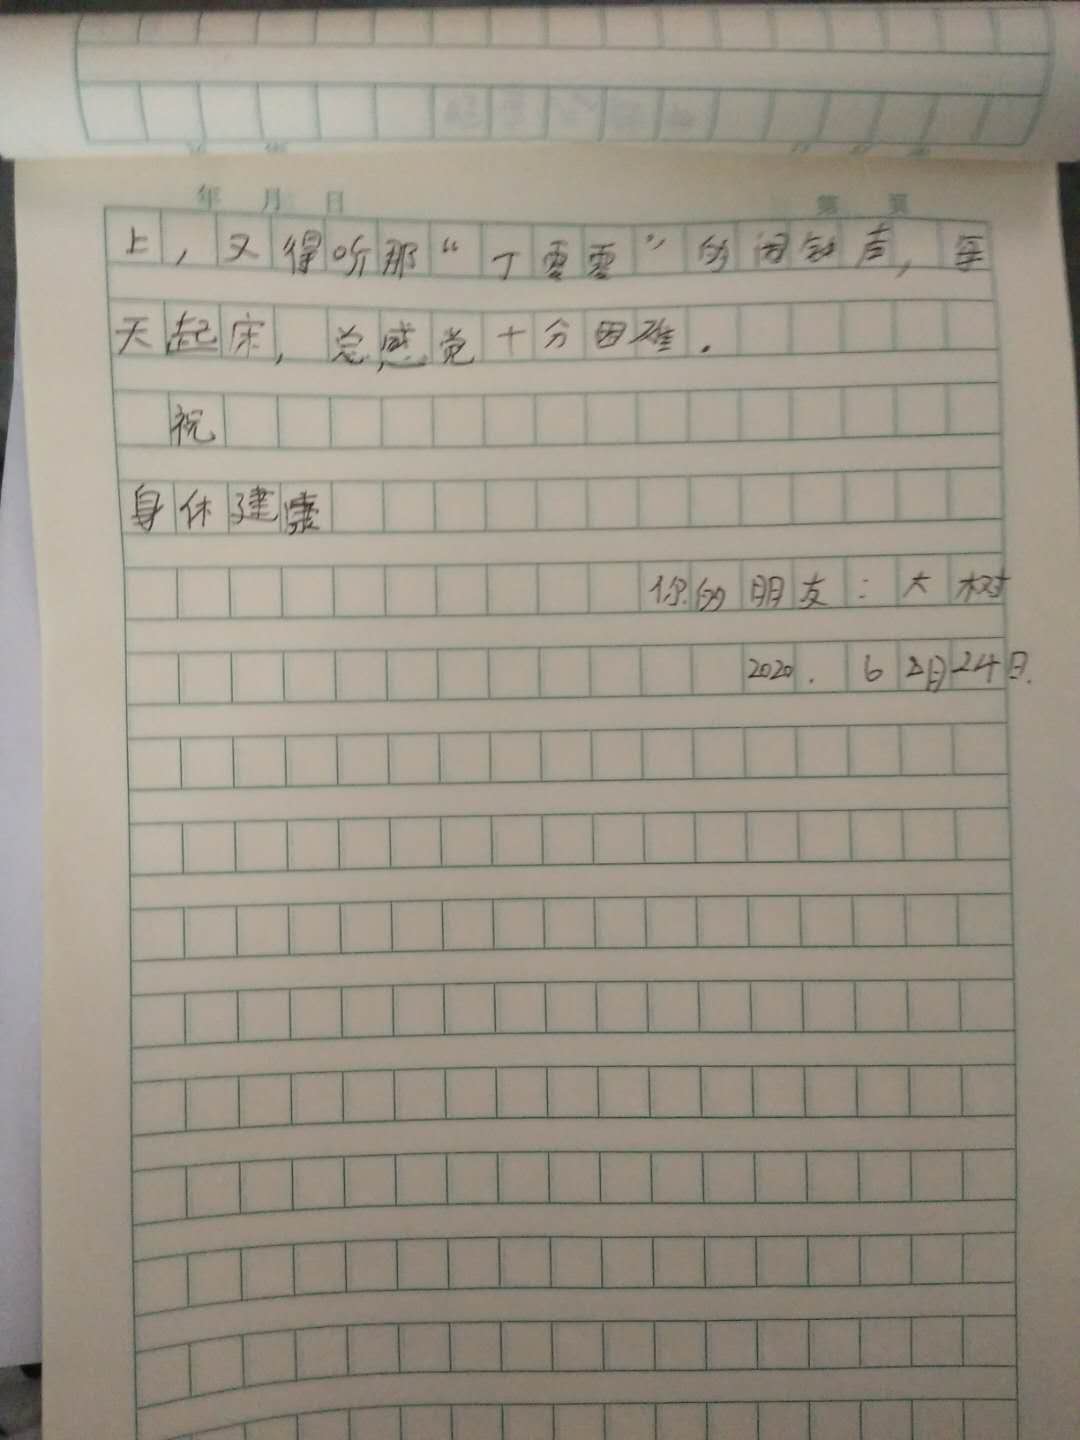 年 月 日 第 页
上，又得听那“丁零零”的闹铃声，每
天起床，总感觉十分困难.
祝
身体健康
你的朋友：大树
2020. 6月24日.